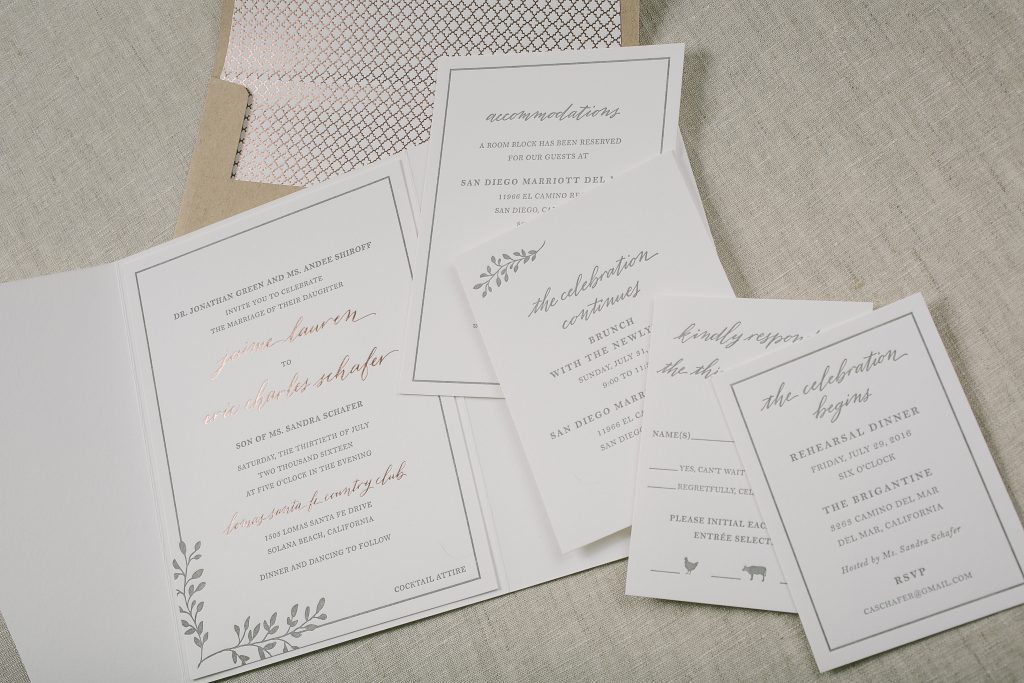 DR. JONATHAN GREEN AND MS. ANDEE SHIROFF
INVITE YOU TO CELEBRATE
THE MARRIAGE OF THEIR DAUGHTER
jaime lauren
TO
eric charles schafer
SON OF MS. SANDRA SCHAFER
SATURDAY, THE THIRTIETH OF JULY
TWO THOUSAND SIXTEEN
AT FIVE O'CLOCK IN THE EVENING
lomas santa fe country club
1505 LOMAS SANTA FE DRIVE
SOLANA BEACH, CALIFORNIA
DINNER AND DANCING TO FOLLOW
COCKTAIL ATTIRE
accommodations
A ROOM BLOCK HAS BEEN RESERVED
FOR OUR GUESTS AT
SAN DIEGO MARRIOTT DEL
11966 EL CAMINO
SAN DIEGO,
the celebration
continues
BRUNCH
WITH THE NEWLY
SUNDAY, JULY 31,
9:00 TO
SAN DIEGO MARRI
11966 EL CAM
SAN DIEGO
kindly respon
the thi
NAME(S)
YES, CAN'T WAIT
REGRETFULLY, CEL
PLEASE INITIAL EAC
ENTRÉE SELECT
the celebration
begins
REHEARSAL DINNER
FRIDAY, JULY 29, 2016
SIX O'CLOCK
THE BRIGANTINE
3263 CAMINO DEL MAR
DEL MAR, CALIFORNIA
Hosted by Ms. Sandra Schafer
RSVP
CASCHAFER@GMAIL.COM